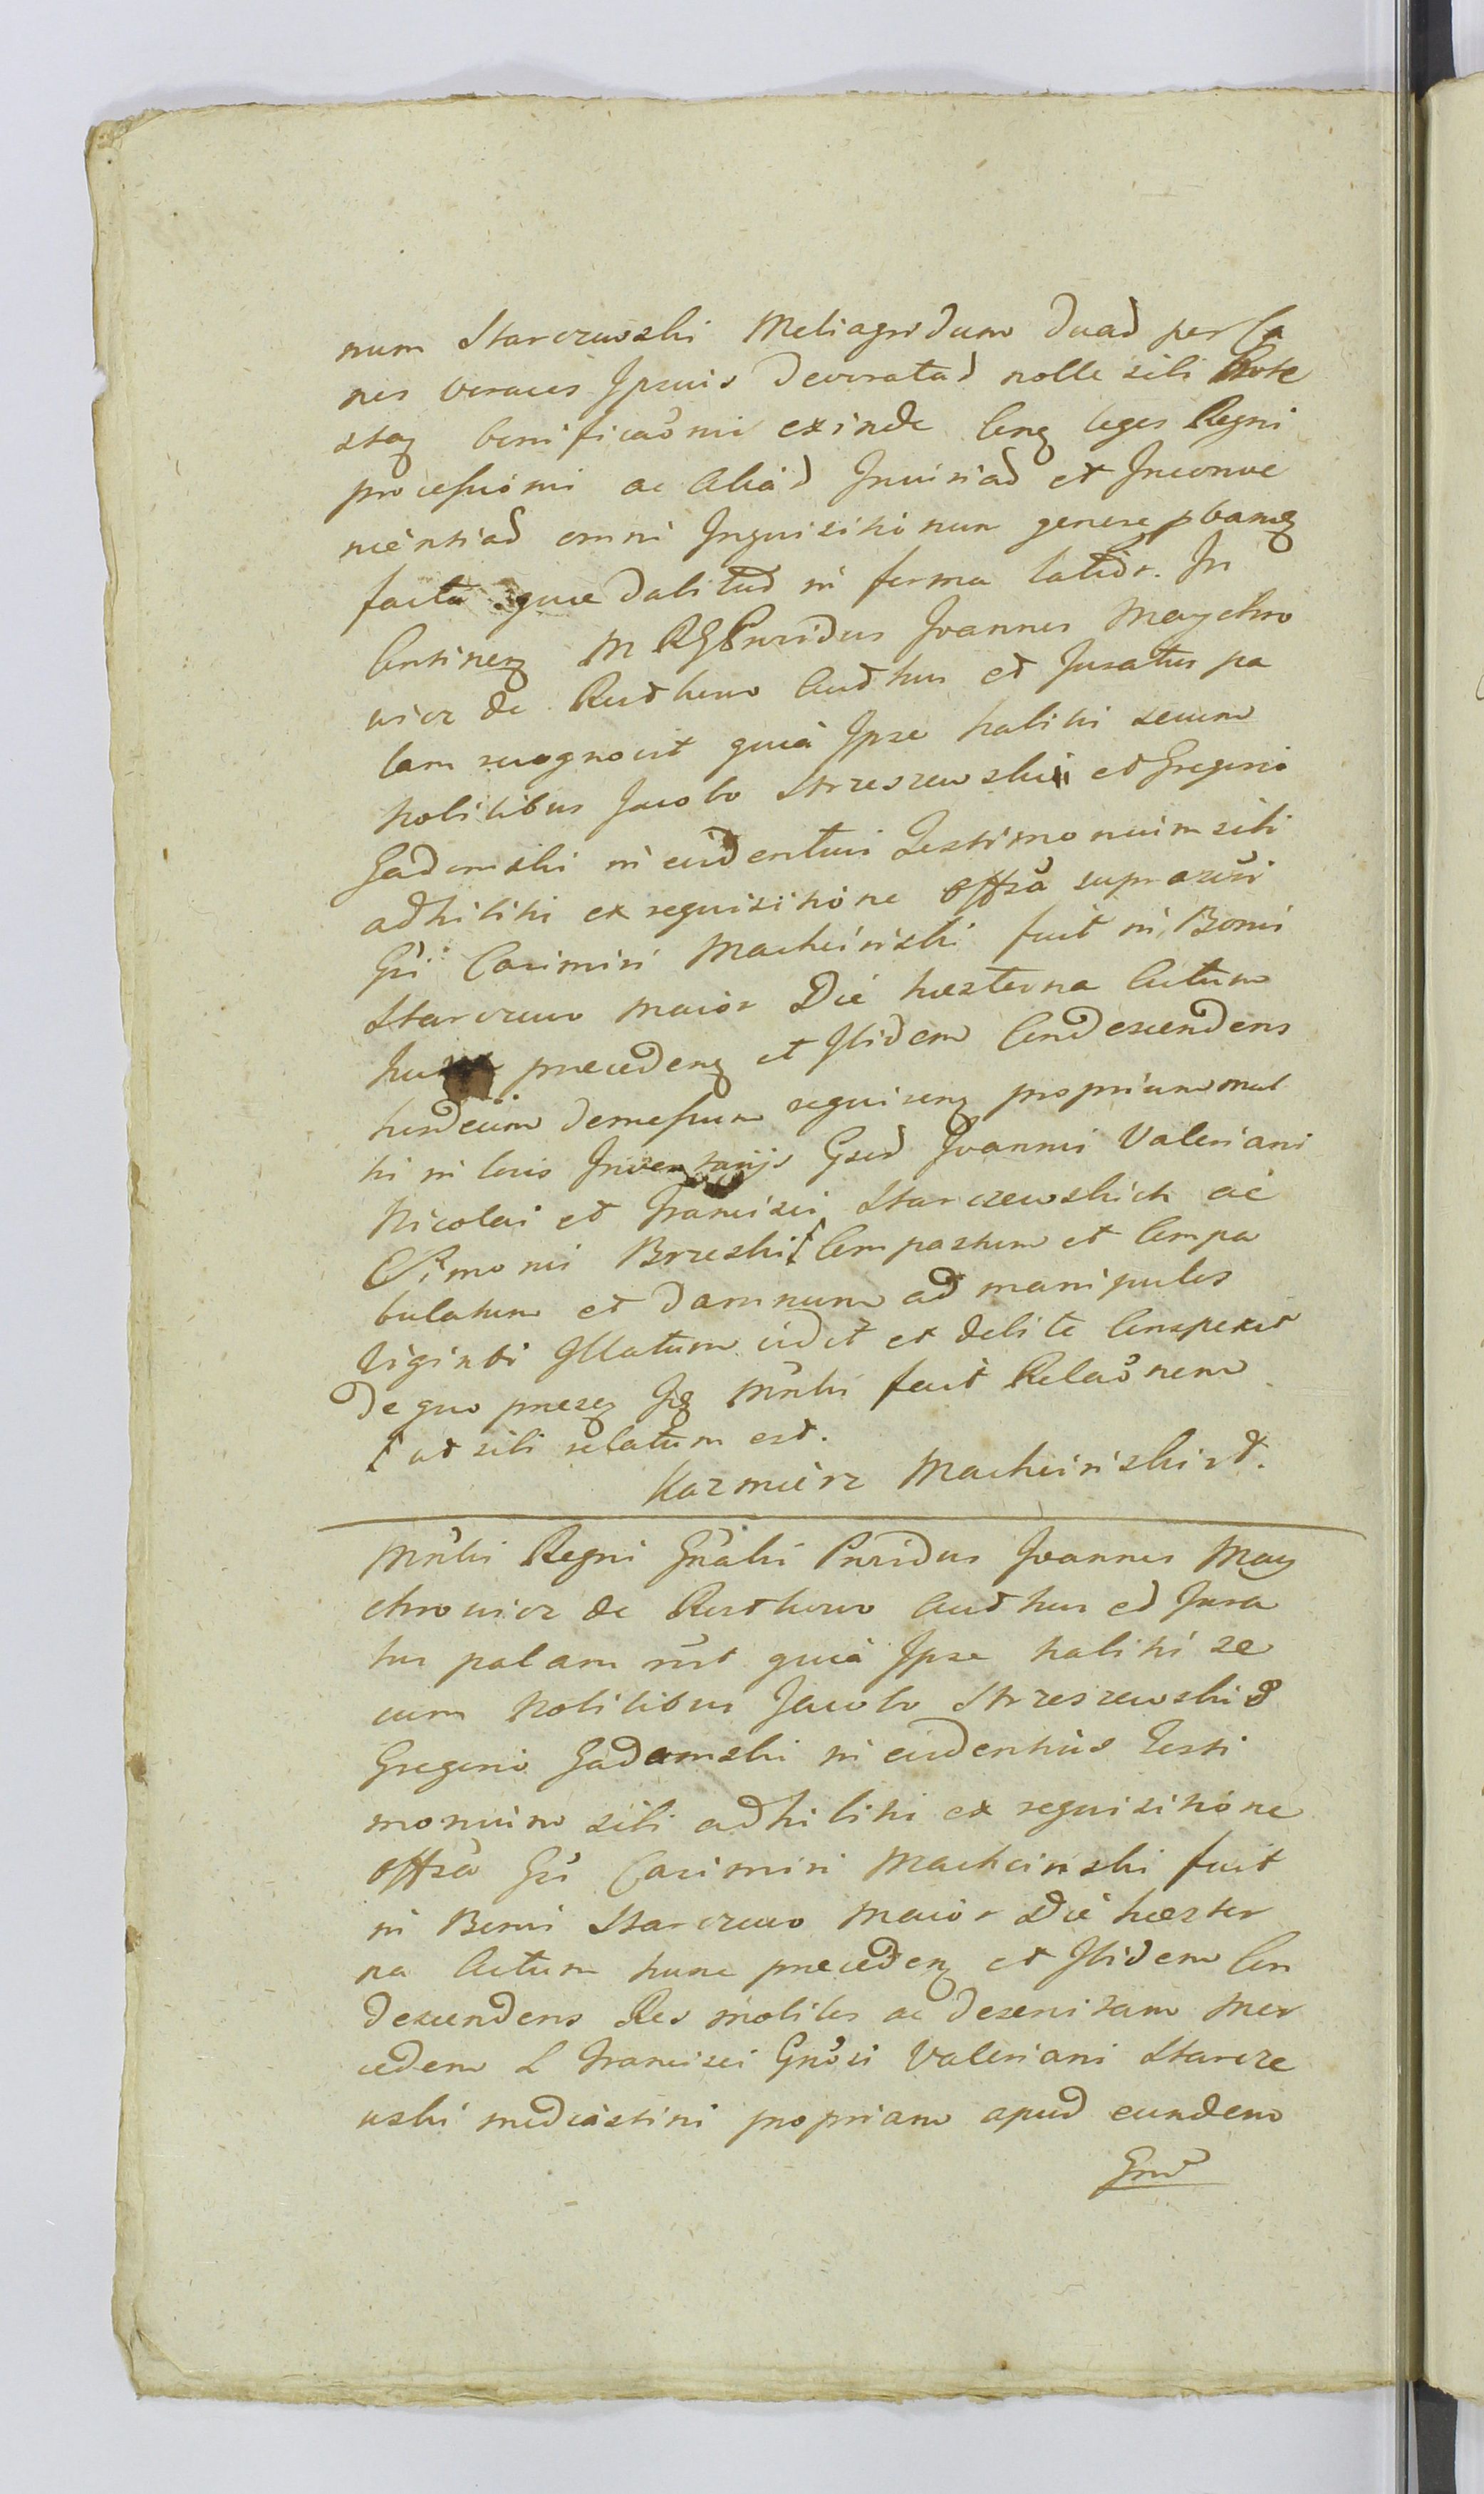 num Starczewski Meliagridum duas per Ca
nes veraces Ipsius devoratas nolle sibi Prote
staq bonificaōnis exinde Conq leges Regni
processionis ac Alias Iniurias et Inconve
nientias omni Inquisitionum genere pbanq
facta que dabitus in forma latior. In
Contineq M R G Pnvidus Joannes Maychro
wicz de Rustkowo Authus et Juratus pa
lam recognovit quia Ipse habitis secum
Nobilibus Jacobo Strzeszewski et Gregorio
Gadomski in evidentius Testimonium sibi
adhibitis ex requisitione Offsa suprascri
Gsi Casimiri Machcinski fuit in Bonis
Starczewo maior Die hesterna Actum
hunc precedenq et Ibidem Condescendens
hordeum demessum requirenq proprium mul
tis in locis Inventarijs Gsod Joannis Valeriani
Nicolai et Francisci Starczewskich ac
Simonis Brzeski Compastum et Compa
bulatum et damnum ad manipulos
Viginti Illatum vidit et debite Conspexit
De quo presq Iq Mnlis fecit Relaōnem
ut sibi relatum est.
Kazmierz Machcinski
Mnlis Regni Gnalis Pnvidus Joannes May
chrowicz de Rustkowo Authus et Jura
tus palam rnt quia Ipse habitis se
cum Nobilibus Jacobo Strzeszewski &
Gregorio Gadomski in evidentius Testi
monium sibi adhibitis ex requisitione
Offsa Gsi Casimiri Machcinski fuit
in Bonis Starczewo maior Die hester
na Actum hunc precedenq et Ibidem Con
descendens Res mobiles ac deservitam mer
cedem L Francisci Gnosi Valeriani Starcze
wski mediastini propriam apud eundem
Gnō